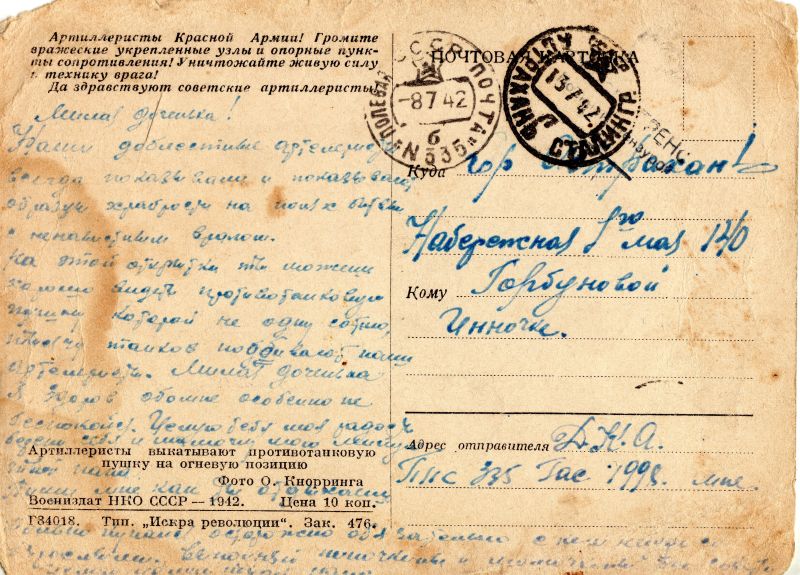 Артиллеристы Красной Армии! Громите
вражеские укрепленные узлы и опорные пунк-
ты сопротивления! Уничтожайте живую силу
и технику врага!
Да здравствуют советские артиллеристы
Милая доченька!
Наши доблестные артелеристы
всегда показывали и показывают
образцы храбрости на полях битвы
с ненавистным врагом.
На этой открытки ты можешь
хорошо видеть противотанковую
пушку которой не одну сотню,
тысячу танков подбивают наши
артелеристы. Милая доченька
Я здоров обомне особенно не
беспокойся. Целую тебя моя радость
береги себя и мамочку мою
Пиши мне как ты отдыхаеш
Артиллеристы выкатывают противотанковую
пушку на огневую позицию
Фото О. Кнорринга
Воениздат НКО СССР — 1942. Цена 10 коп.
Г34018. Тип. „Искра революции". Зак. 476.
осторожно обязательно
ПОЧТОВАЯ КАРТОЧКА
СССР ПОЛЕВАЯ ПОЧТА
-8 7 42
б
N 535
АСТРАХАНЬ СТАЛИНГР.
13 7 42
Куда гор Астрахань
Набережная 1го мая 140
Кому Горбуновой
Инночке.
Адрес отправителя Д.К.А.
ППС 335 Гас 1998.